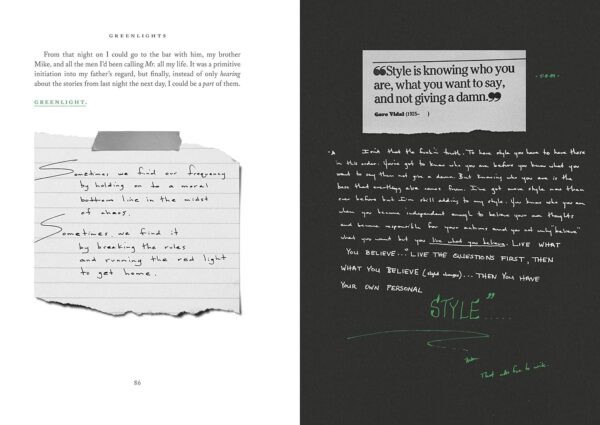 GREENLIGHTS
From that night on I could go to the bar with him, my brother
Mike, and all the men I'd been calling Mr. all my life. It was a primitive
initiation into my father's regard, but finally, instead of only hearing
about the stories from last night the next day, I could be a part of them.
GREENLIGHT.
Sometimes we find our frequency
by holding on to a moral
bottom line in the midst
of chaos.
Sometimes we find it
by breaking the rules
and running the red light
to get home.
86
❝Style is knowing who you
are, what you want to say,
and not giving a damn.❞
Gore Vidal (1925-    )
Isn't that the fuckin truth. To have style you have to have these
in this order. You've got to know who you are before you know what you
want to say then not give a damn. But knowing who you are is the
base that everything else comes from. I've got more style now than
ever before but I'm still adding to my style. You know who you are
when you become independent enough to believe your own thoughts
and become responsible for your actions and you not only "believe"
what you want but you live what you believe. LIVE WHAT
YOU BELIEVE..." LIVE THE QUESTIONS FIRST, THEN
WHAT YOU BELIEVE (slight changes)... THEN YOU HAVE
YOUR OWN PERSONAL
STYLE".....
That was fun to write